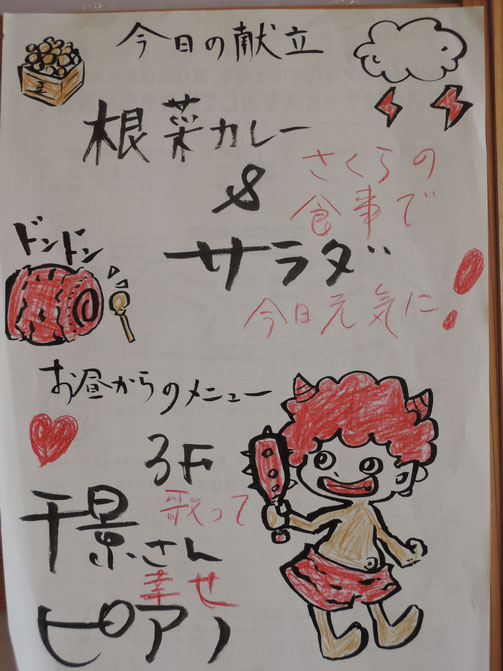 今日の献立
根菜カレー
&
サラダ
さくらの
食事で
今日元気に!
ドンドン
お昼からのメニュー
3F
千景さん
ピアノ
歌って
幸せ